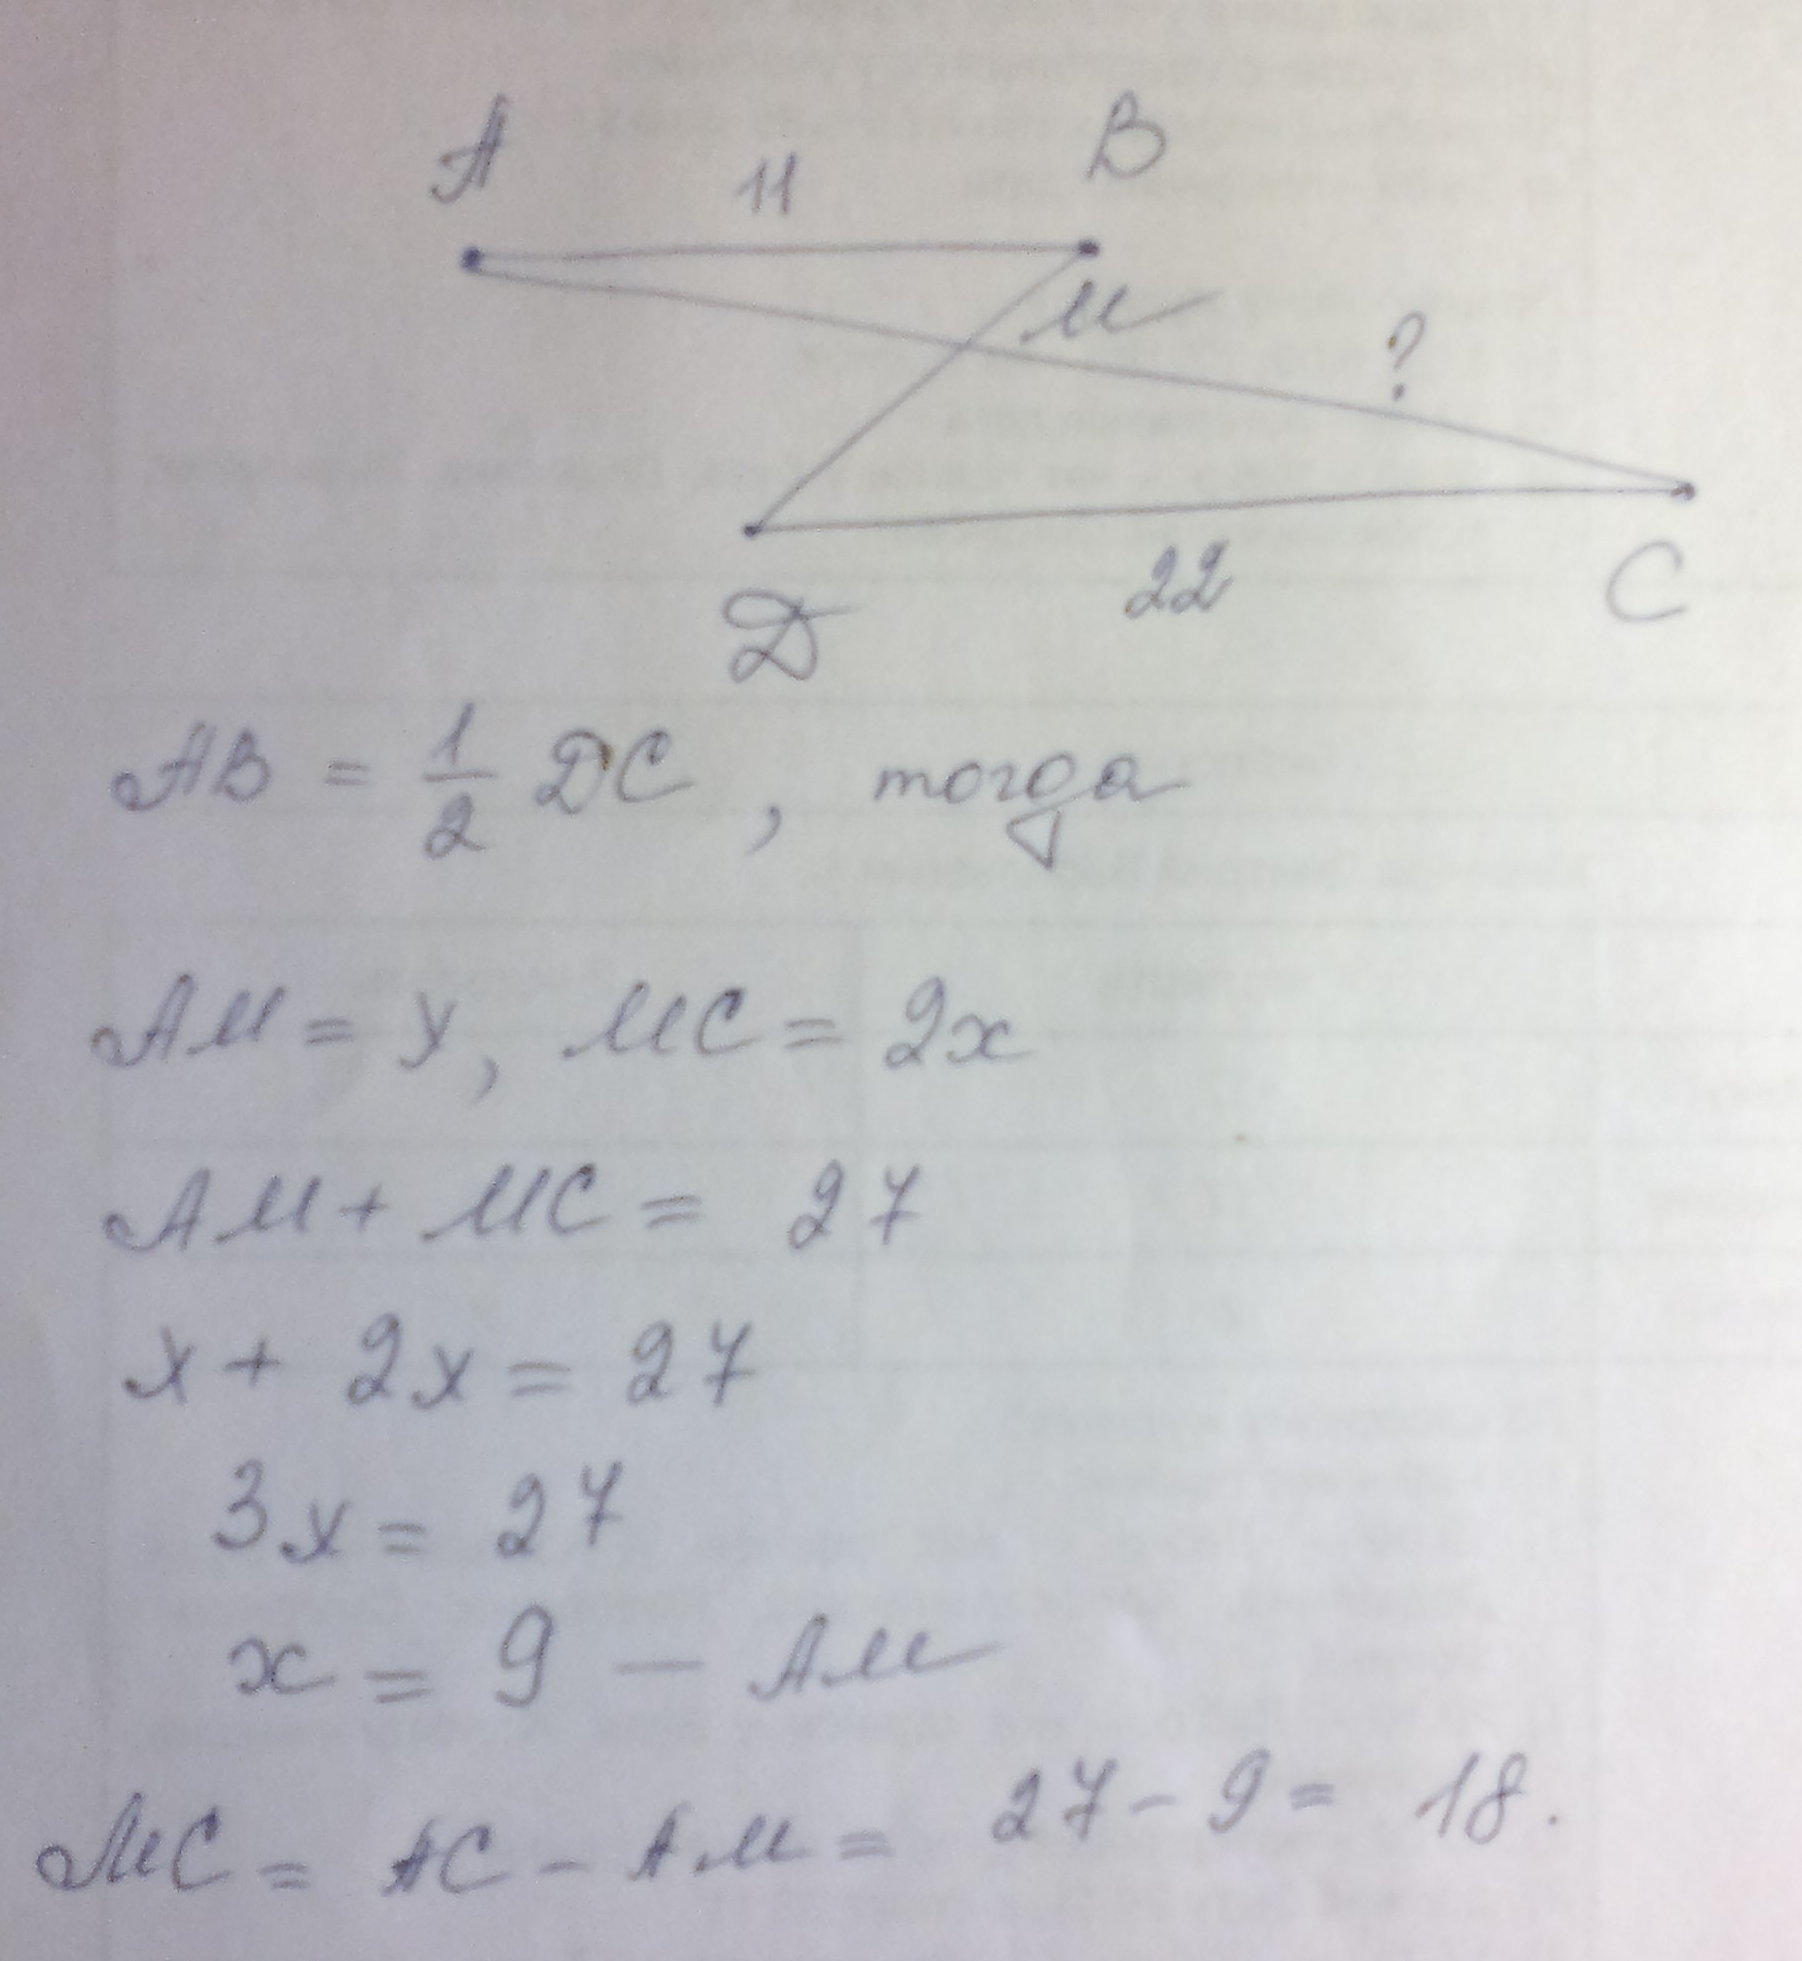 A 11 B
M
?
D 22 C
AB = 1/2 DC, тогда
AM = x, MC = 2x
AM + MC = 27
x + 2x = 27
3x = 27
x = 9 - AM
MC = AC - AM = 27 - 9 = 18.